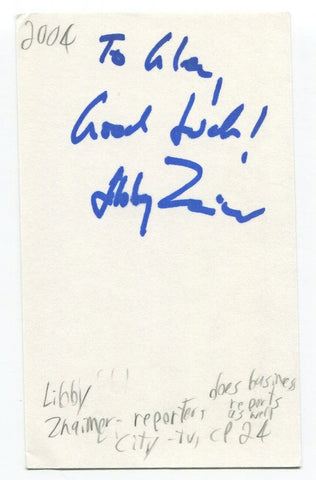 2004
To Alex,
Good Luck!
Libby Znaimer
Libby
Znaimer - reporter, does business
reports
as well
City-tv, CP 24